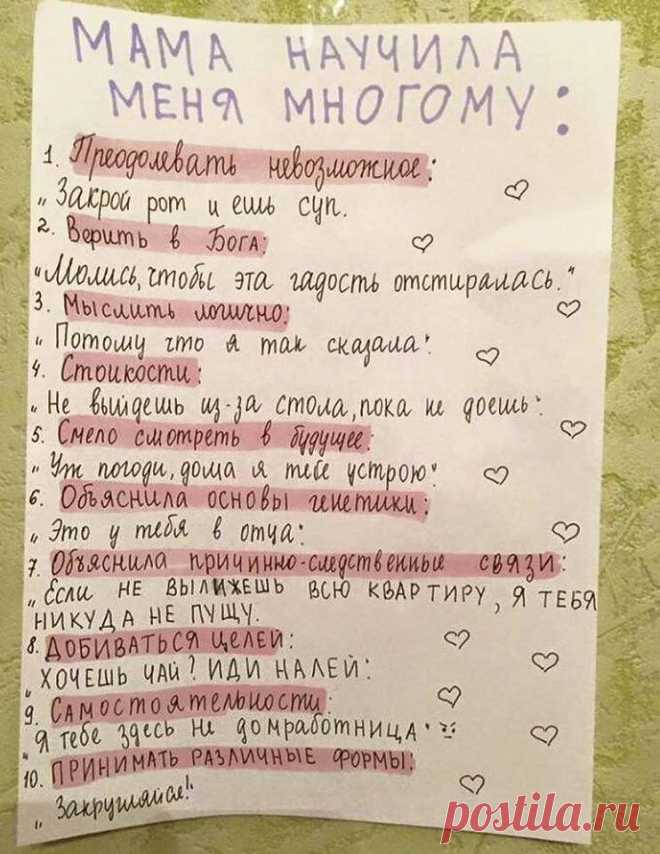 МАМА НАУЧИЛА
МЕНЯ МНОГОМУ:
1. Преодолевать невозможное:
„Закрой рот и ешь суп.
2. Верить в Бога:
"Молись, чтобы эта гадость отстиралась."
3. Мыслить логично:
„Потому что я так сказала".
4. Стоикости:
„Не выйдешь из-за стола, пока не доешь".
5. Смело смотреть в будущее:
„Уж погоди, дома я тебе устрою".
6. Объяснила основы генетики:
„Это у тебя в отца:
7. Объяснила причинно-следственные связи:
„Если НЕ ВЫЛИЖЕШЬ ВСЮ КВАРТИРУ, Я ТЕБЯ
НИКУДА НЕ ПУЩУ.
8. ДОБИВАТЬСЯ ЦЕЛЕЙ:
„ХОЧЕШЬ ЧАЙ? ИДИ НАЛЕЙ".
9. Самостоятельности:
"Я тебе здесь не домработница"
10. ПРИНИМАТЬ РАЗЛИЧНЫЕ ФОРМЫ:
„Закругляйся!"
postila.ru